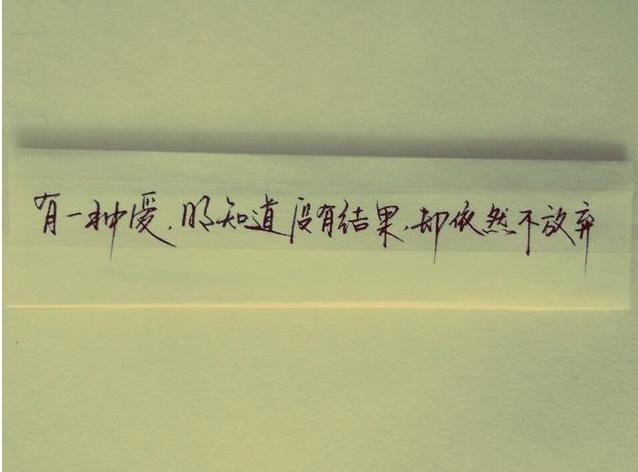 有一种爱，明知道没有结果，却依然不放弃